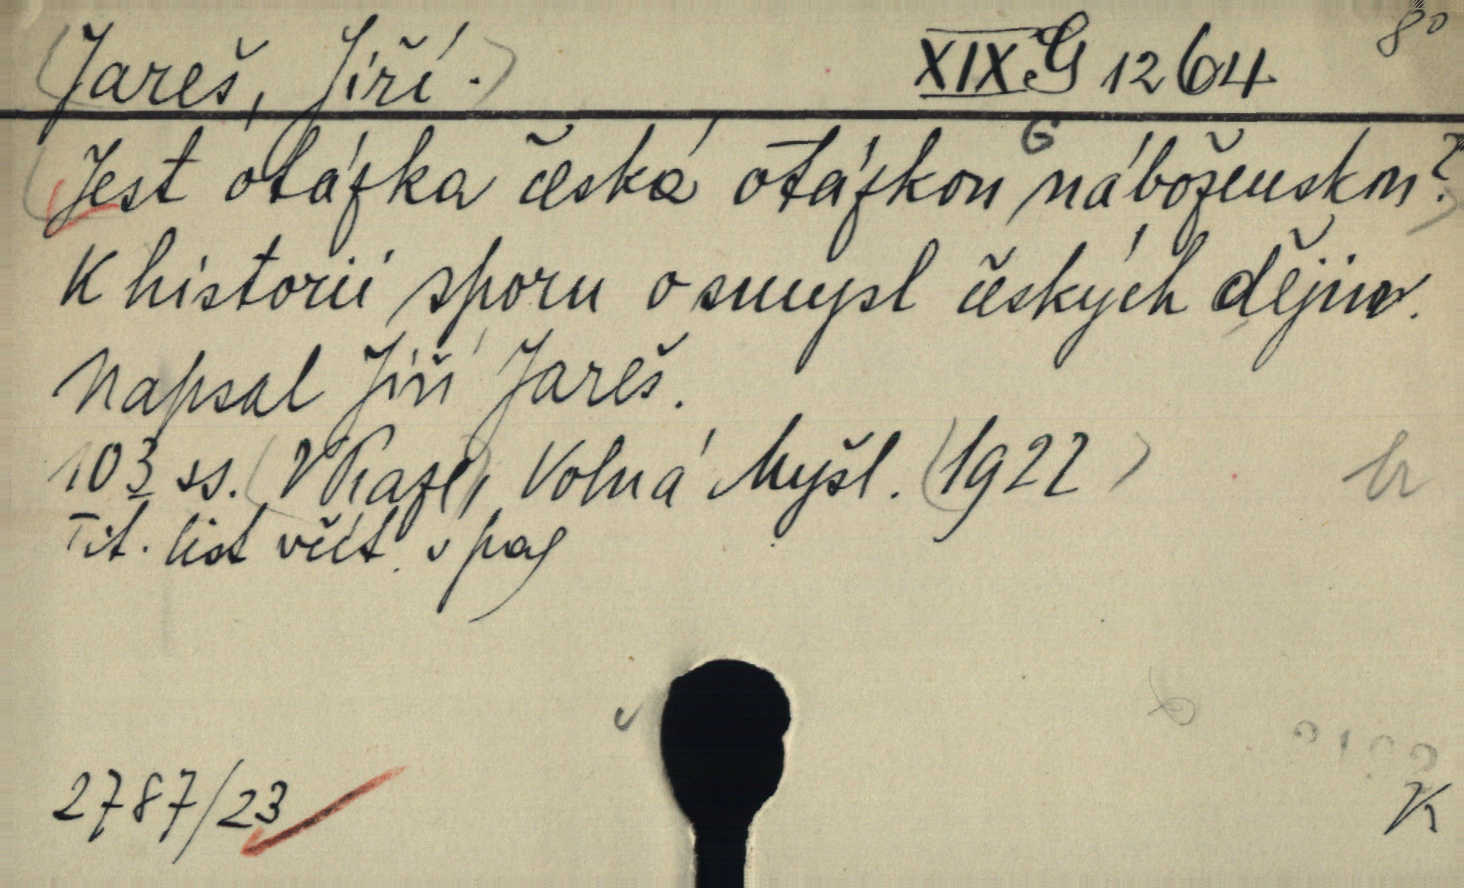 (Jareš, Jiří.) XIX G 1264 8°
(Jest otázka česká otázkou náboženskou?)
K historii sporu o smysl českých dějin.
Napsal Jiří Jareš.
103 ss. (V Praze), Volná Myšl. (1922)
Tit. list včít. v pag
2787/23
K